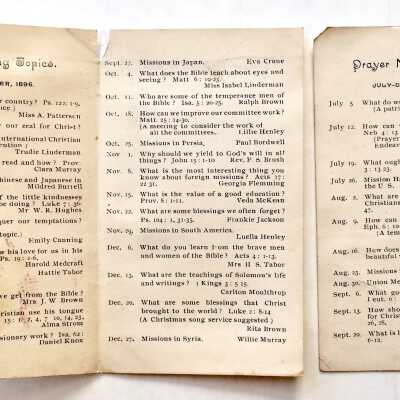 g Topics.
ER, 1896.
r country? Ps. 122: 1-9,
Miss A. Patterson
our zeal for Christ?
nternational Christian
ration of
Tradie Linderman
read and how? Prov.
Clara Murray
hinese and Japanese in
Mildred Burrell
of the little kindnesses
e doing? Luke 7: 36-
Mr W. R. Hughes
quer our temptations?
Emily Canning
topic.)
e his love for us in his
Ps. 19: 1-6,
Harold Medcraft
Hattie Tabor
ve get from the Bible?
Mrs J. W. Brown
hristian use his tongue
15: 1, 2, 4, 7, 10, 14, 23,
Alma Strom
blessing? Isa. 62:
Daniel Knox
Sept. 27. Missions in Japan. Eva Crane
Oct. 4. What does the Bible teach about eyes and
seeing? Matt 6: 19-23.
Miss Isabel Linderman
Oct. 11. Who are some of the temperance men of
the Bible? Isa. 5: 20-25. Ralph Brown
Oct. 18. How can we improve our committee work?
Matt. 25: 14-30.
(A meeting to consider the work of
all the committees. Lilie Henley
Oct. 25. Missions in Persia, Paul Bordwell
Nov 1. Why should we yield to God's will in all
things? John 15: 1-10 Rev. F. S. Brush
Nov. 8. What is the most interesting thing you
know about foreign missions? Acts 17:
22 31. Georgia Flemming
Nov. 15. What is the value of a good education?
Prov. 8: 1-11. Veda McKean
Nov. 22. What are some blessings we often forget?
Ps. 104: 1, 31-35. Frankie Jackson
Nov. 29. Missions in South America.
Luella Henley
Dec. 6. What do you learn from the brave men
and women of the Bible? Acts 4: 1-13.
Mrs H S. Tabor
Dec. 13. What are the teachings of Solomon's life
and writings? 1 Kings 3: 5 15.
Carlton Moulthrop
Dec. 20. What are some blessings that Christ
brought to the world? Luke 2: 8-14
(A Christmas song service suggested)
Rita Brown
Dec. 27. Missions in Syria. Willie Murray
Prayer M
JULY-D
July 5 What do w
(A patri
July 12. How can
Neb 4: 13
(Prayer
Endeav
July 19. What ough
3: 13
July 26. Mission Ha
the U S.
Aug. 2. What are
Christians
47.
Aug. 9. How can
Eph. 6: 10
Aug. 16. How does
beautiful
Aug. 23. Missions
Aug. 30. Union Me
Sept. 6. What goo
I eut. 6:
Sept. 13. How shou
for Christ
26, 28,
Sept. 20. What is
6-12.